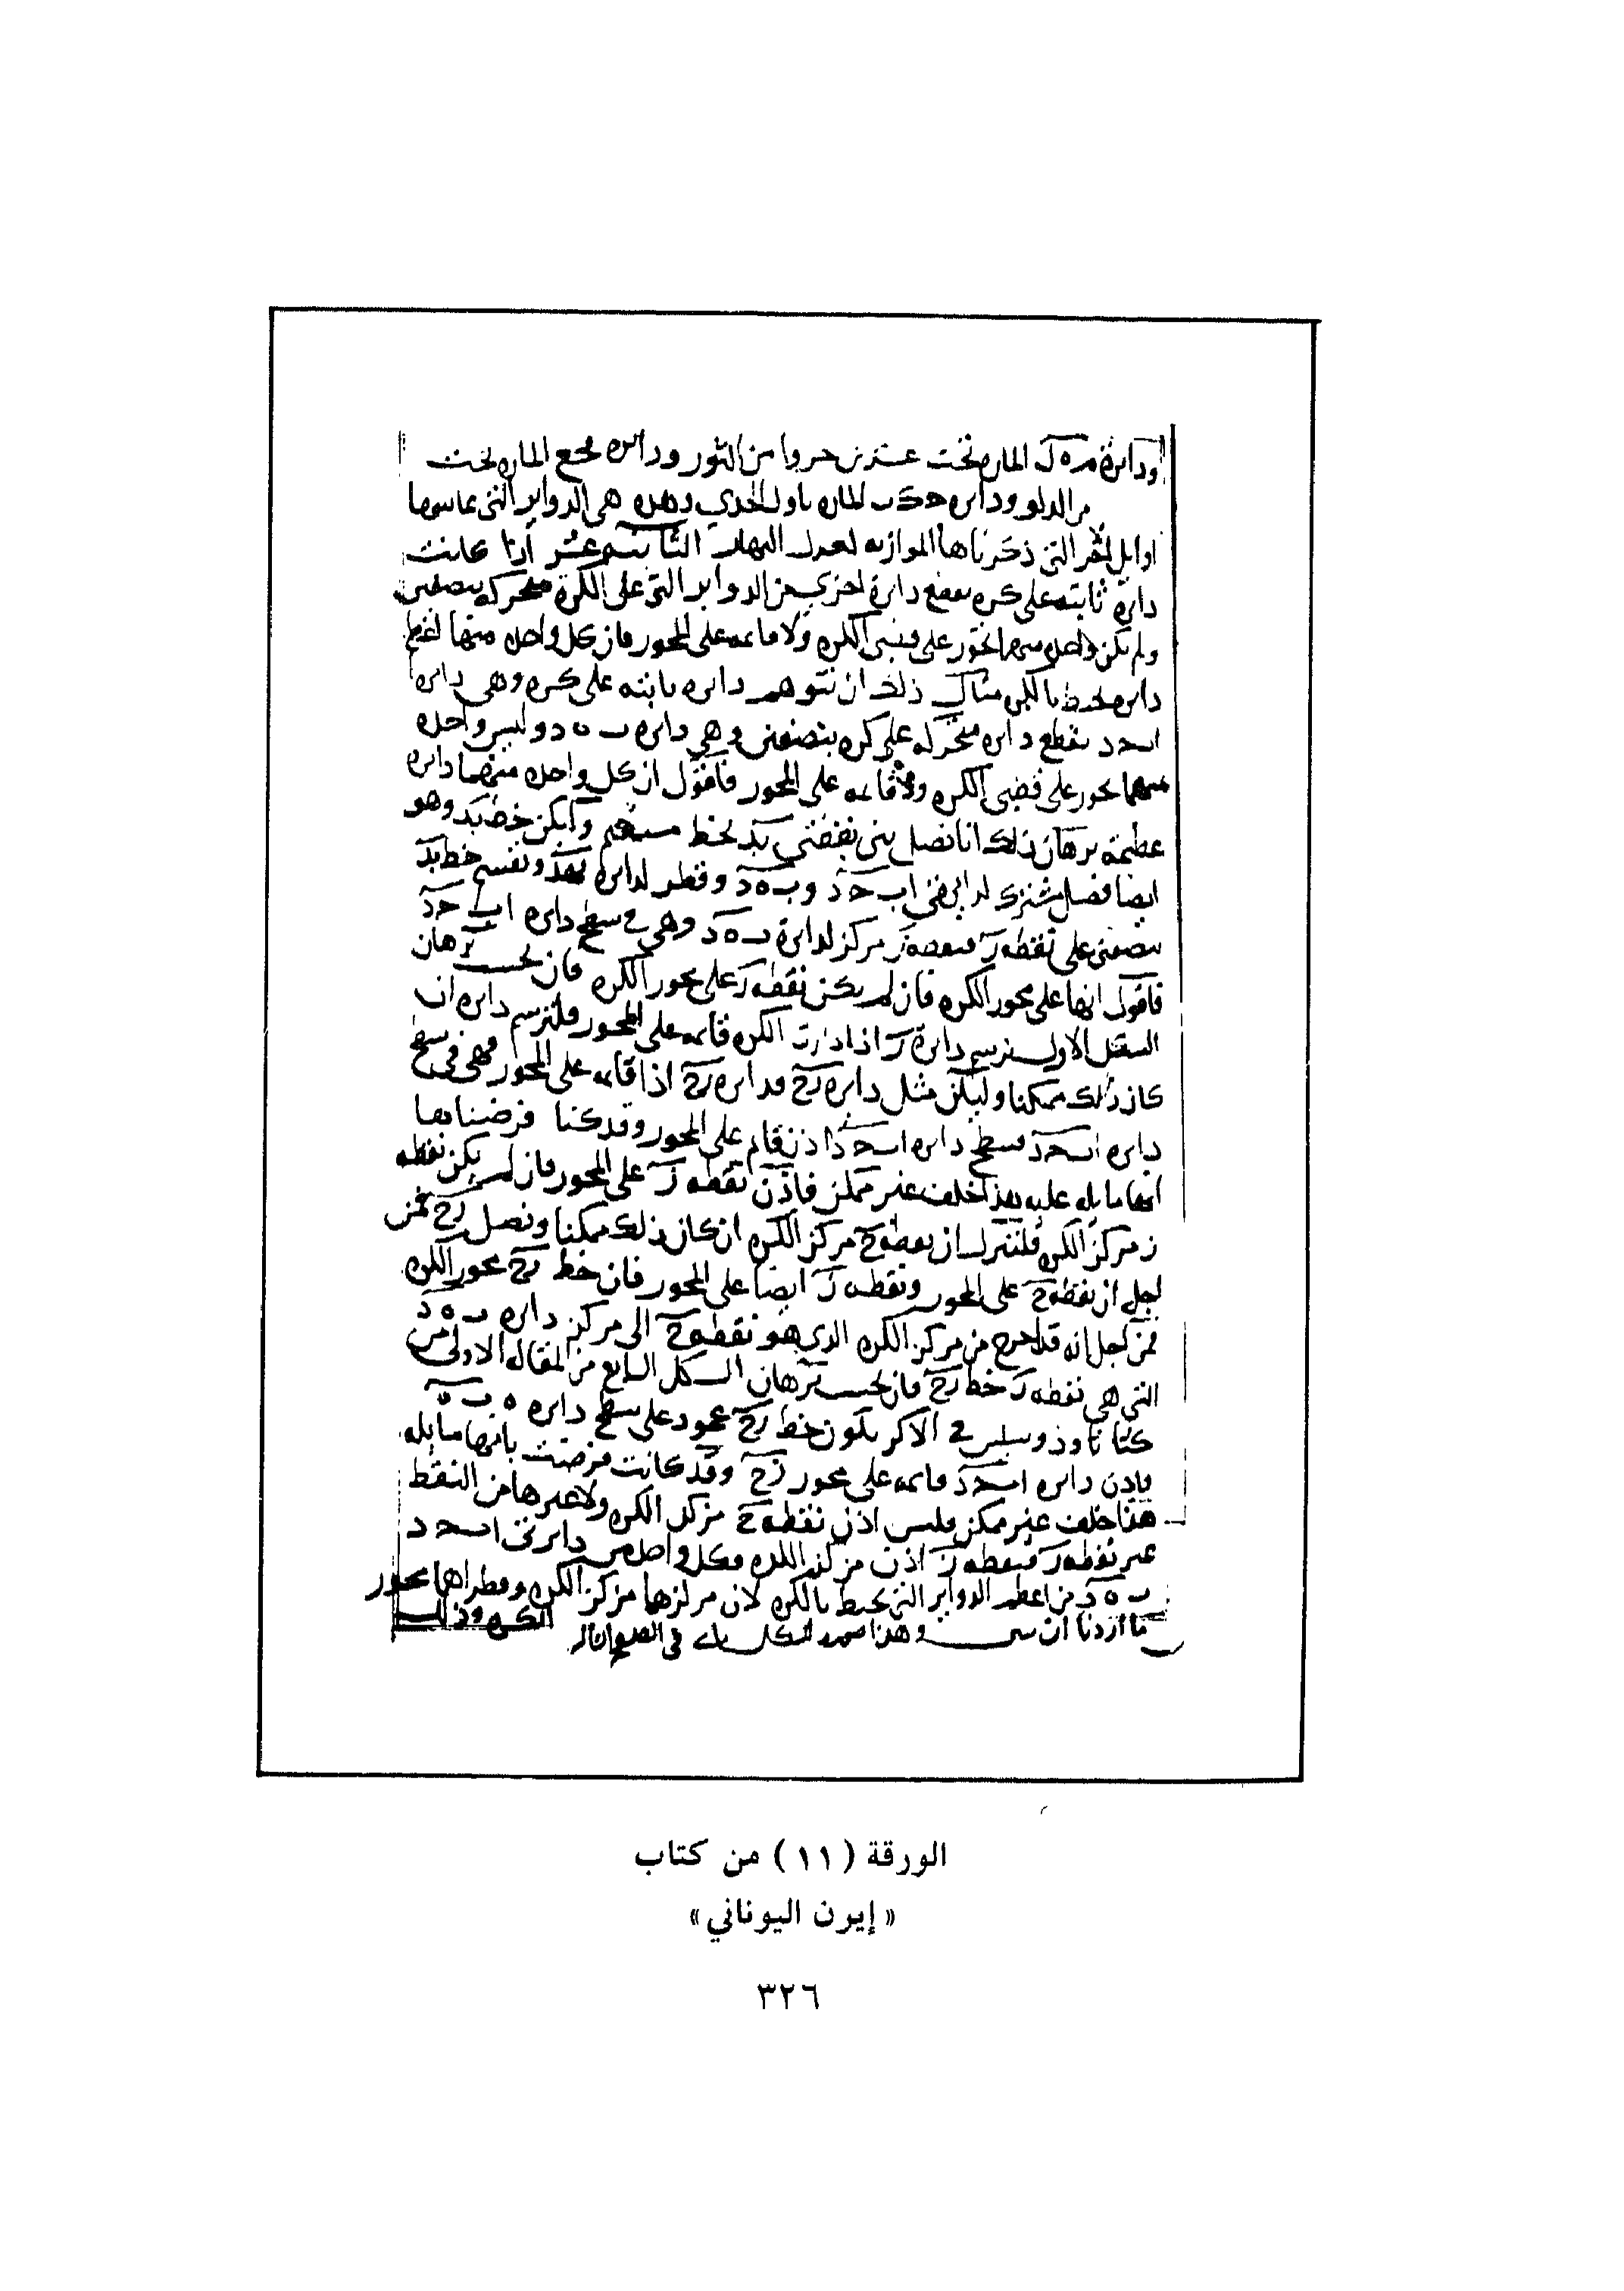 ودائرة م ه ك الماره تحت عشرين حزوا من الثور ودائره محع الماره تحت
من الدلو ودائره حكب الماره باول الجدي وهذه هي الدواير التي تماسها
اوايل التي ذكرناها الموازيه لمعدل النهار الثانيه عشر اذا كانت
دايرة ثابته على كره تقطع دايرة اخرى من الدواير التي على الكرة متحركه بنصفين
ولم تكن واحده منهما تحوز على قطبي الكره ولا قايمه على المحور فان كل واحده منها اعظم
دايره تحيط بالكره مثال ذلك ان نتوهم دايره ثابته على كره وهي دايره
ابحد تقطع دايره متحركه على كره بنصفين وهي دايره ب ه د وليس واحده
منهما تحوز على قطبي الكره ولا قايمه على المحور فاقول ان كل واحده منهما دايره
عظيمه برهان ذلك انا نصل بين نقطتي بد بخط مستقيم وليكن خط بد وهو
ايضا فصل مشترك لدايرتي اب حد وب ه د وقطر لدايره بهد ونقسم خط بد
بنصفين على نقطه ز فنقطه ز مركز لدايرة ب ه د وهي في سطح دايره اب حد
فاقول انها على محور الكره فان لم يكن نقطه ز على محور الكره فان بحسب برهان
الشكل الاول نرسم دايرة ز اذا دارت الكره قايمه على المحور فلنرسم دايره ان
كان ذلك ممكنا وليكن مثل دايره زح فدايره زح اذا قايمه على المحور فهي في سطح
دايره ابحد فسطح دايره ابحد اذن قايم على المحور وقد كنا فرضناها
انها مايله عليه هذا خلف غير ممكن فاذن نقطه ز على المحور فان لم يكن نقطه
ز مركز الكره فلننزل ان نقطه ح مركز الكره ان كان ذلك ممكنا ونصل زح فمن
اجل ان نقطه ح على المحور ونقطه ز ايضا على المحور فان خط زح محور الكره
فمن اجل انه قد اخرج من مركز الكره الذي هو نقطه ح الى مركز دايره ب ه د
التي هي نقطه ز خط زح فان بحسب برهان الشكل السابع من المقاله الاولى من
كتاب ثاوذوسيس في الاكر يكون خط زح عمود على سطح دايره
فاذن دايره ابحد قايمه على محور زح وقد كانت فرضت بانها مايله
هذا خلف غير ممكن فليس اذن نقطه ح مركز الكره ولا غيرها من النقط
غير نقطه ز فنقطه ز اذن مركز الكره وكل واحد من دايرتي ابحد
ب ه د من اعظم الدواير التي تحيط بالكره لان مركزها مركز الكره وقطراها محور
الكره وذلك
ما اردنا ان نبين وهذا صوره الشكل في
الورقة (١١) من كتاب
«إيرن اليوناني»
٣٢٦